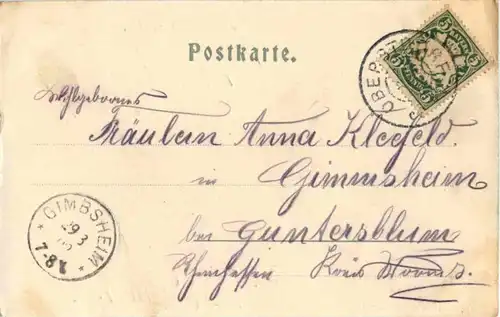 Postkarte.
Wohlgebornes
Fräulein Anna Klefeld.
in Gimmsheim
bei Guntersblum
Rheinhessen Kreis Worms.
GIMBSHEIM
29 3
7-8
5 5
5 5